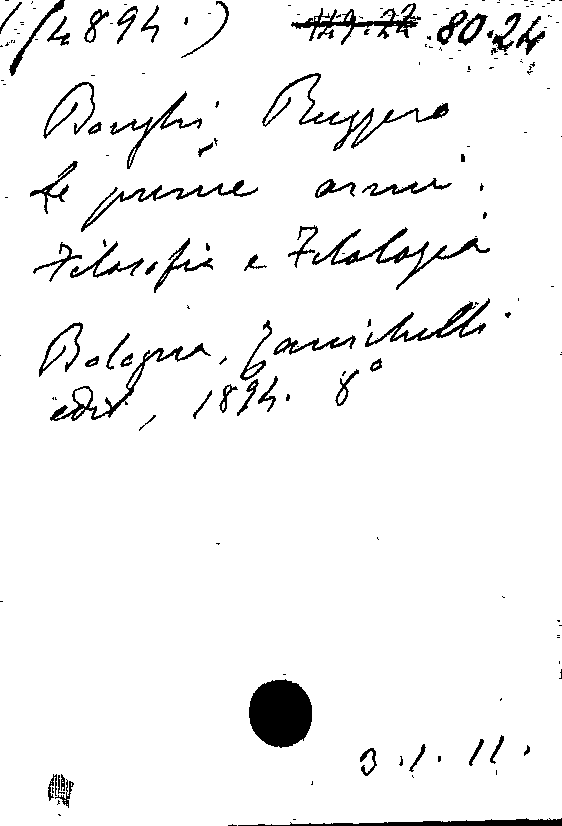 (14894.) 149.22 80.24
Bonghi, Ruggero
Le prime armi.
Filosofia e Filologia
Bologna, Zanichelli
edit, 1894. 8°
3.1.11.